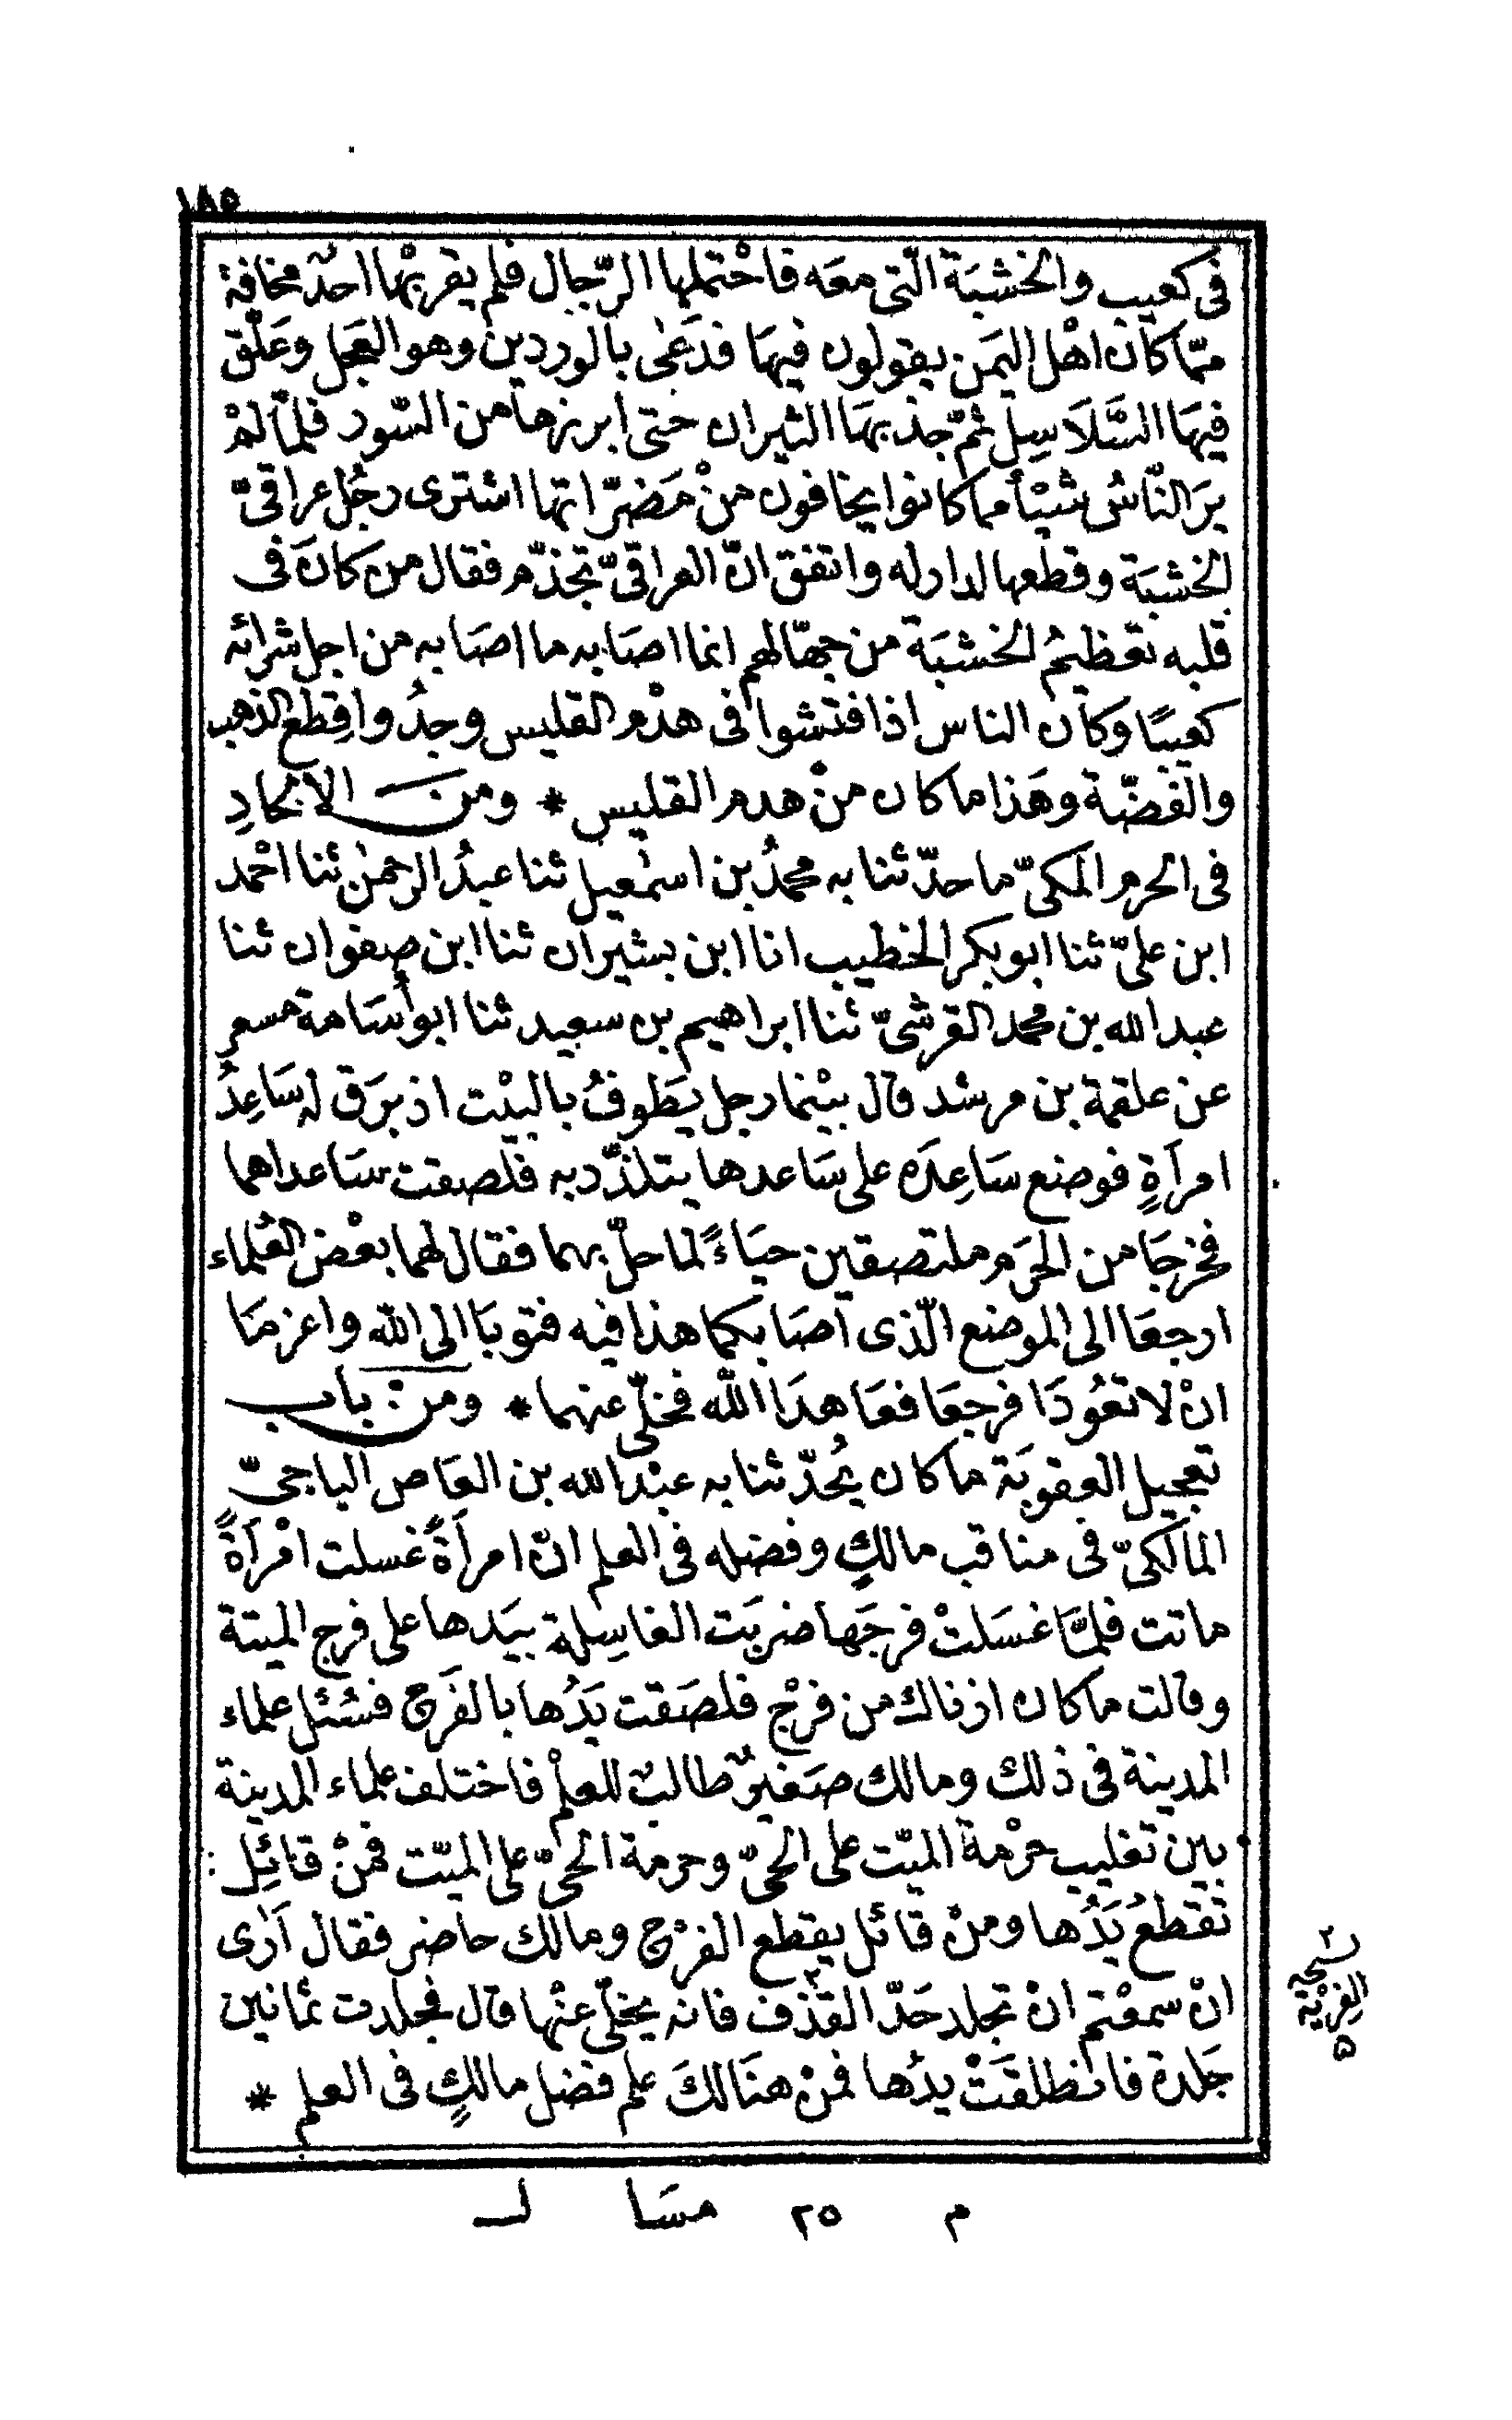 ١٨٥
فى كعيب والخشبَة الّتى معَه فاحْتملها الرّجال فلم يقربْها احدٌ مخافة
ممّا كان اهْل اليمَن يقولون فيهَا فدَعٰى بالوردين وهو العَجل وعَلّق
فيهَا السَّلَاسِل ثمّ جذبهَا الثيران حتى ابرزها من السّور فلمّا لمْ
يرَ النّاسُ شيْأ مما كانوا يخافون منْ مَضرّاتها اشترى رجُل عراقىّ
الخشبَة وقطعها لدار له واتفق انّ العراقىّ تجذّم فقال من كانَ فى
قلبه تعْظيمُ الخشبَة من جهّالهم انما اصَابه ما اصَابه من اجل شرائه
كعيبًا وكان الناس اذا فتشوا فى هدْم القليس وجدُوا قِطع الذهب
والفضّة وهَذا ما كان منْ هدم القليس * ومن الالحادِ
فى الحرم المكىّ ما حدّثنا به محمدُ بن اسمٰعيل ثنا عبدُ الرحمٰن ثنا احْمد
ابن علىّ ثنا ابو بكر الخطيب انا ابن بشيران ثنا ابن صفوان ثنا
عبد الله بن محمد القرشىّ ثنا ابراهيم بن سعيد ثنا ابو أُسَامة مسعر
عن علقمة بن مرشد قال بيْنما رجل يَطوفُ بالبيْت اذ برَق له سَاعِدُ
امرأةٍ فوضع سَاعِدَه على سَاعدها يتلذّد به فلصقت سَاعداهما
فخرجَا من الحَرَم ملتصقين حيَاءً لما حلّ بهما فقال لهما بعْض العُلماء
ارجعَا الى الموضع الّذى اصَابكما هذا فيه فتوبَا الى الله واعزمَا
انْ لا تعُودَا فرجعَا فعَاهدَا الله فخلّى عنهما * ومن باب
تعجيل العقوبَة ما كان يُحدّثنا به عبْد الله بن العَاص الباجىّ
المالكىّ فى مناقب مالكٍ وفضله فى العلم انّ امرأةً غسلت امْرأَةً
ماتت فلمَّا غسَلتْ فرجَها ضربَت الغاسِلة بيَدها على فرج الميتة
وقالت ما كان ازناك من فرْج فلصَقت يَدُها بالفَرج فسُئل علماء
المدينة فى ذلك ومالك صَغيرٌ طالبٌ للعلْم فاختلف علماء المدينة
بين تغليب حرْمة الميّت على الحىّ وحرمة الحىّ على الميّت فمنْ قائِل
تقطعُ يَدُها ومنْ قائل يقطع الفرْج ومالك حاضر فقال أرٰى
انْ سمعْتم انْ تجلد حَدّ القذْف فانه يخلّى عنْها قال فجلدت ثمانين
جَلدة فانطلقَتْ يدُها فمنْ هنَالكَ علم فضل مالكٍ فى العلم *
٢
نسخه
الفِرْيَة
٥
م ٢٥ مسَا لـ